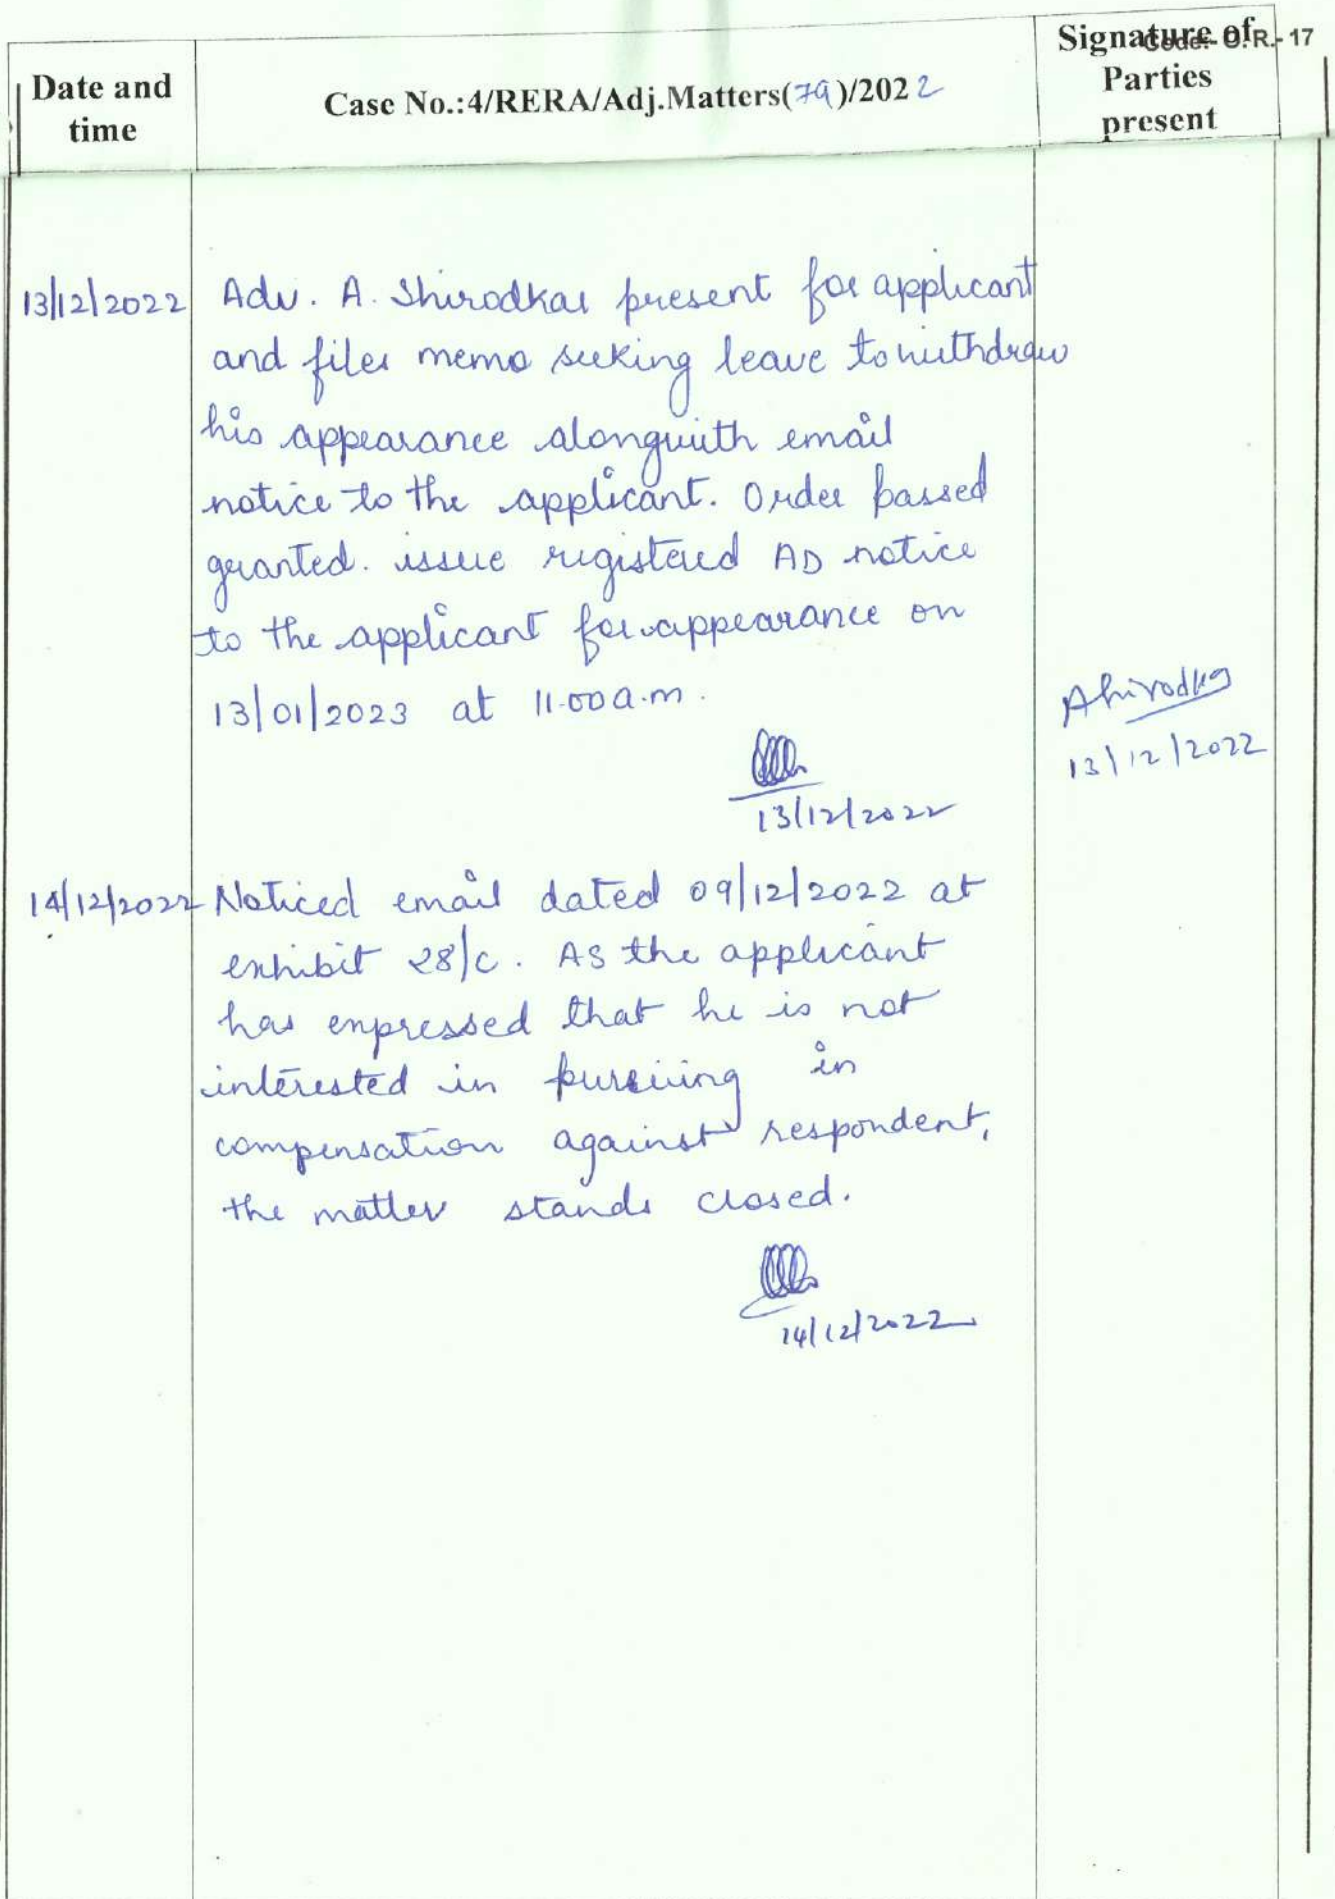 Code:- O.R.- 17
Date and time
Case No.:4/RERA/Adj.Matters(79)/2022
Signature of
Parties
present
13/12/2022 Adv. A. Shirodkar present for applicant
and files memo seeking leave to withdraw
his appearance alongwith email
notice to the applicant. Order passed
granted. issue registered AD notice
to the applicant for appearance on
13/01/2023 at 11.00 a.m.
13/12/2022
AShirodkar
13/12/2022
14/12/2022 Noticed email dated 09/12/2022 at
exhibit 28/c. As the applicant
has expressed that he is not
interested in pursuing in
compensation against respondent,
the matter stands closed.
14/12/2022